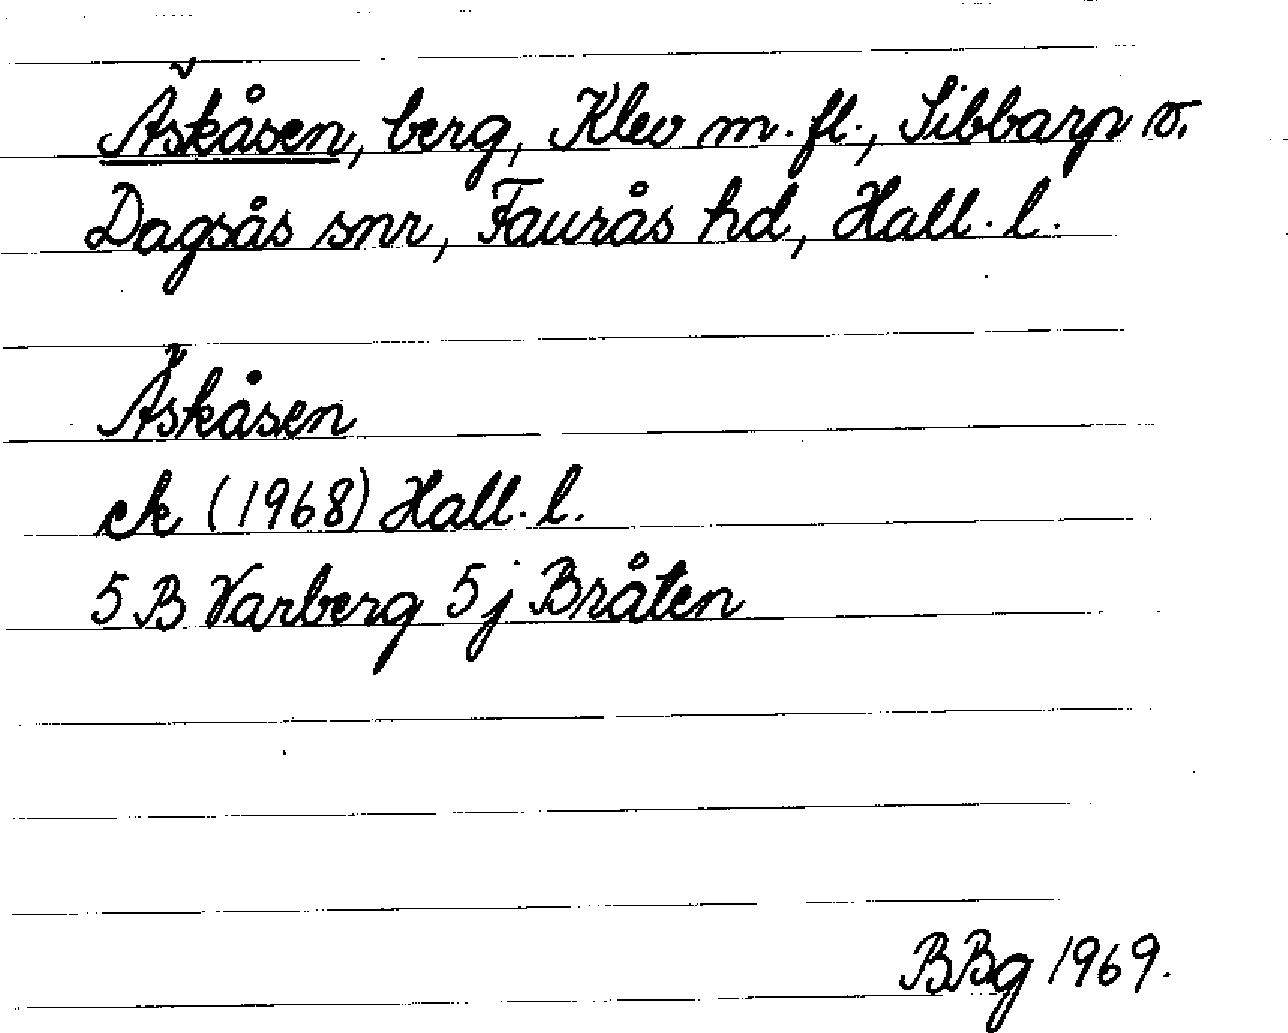 Äskåsen, berg, Klev m. fl., Sibbarp o.
Dagsås snr, Faurås hd, Hall. l.
Äskåsen
ek (1968) Hall. l.
5 B Varberg 5j Bråten
BBg 1969.